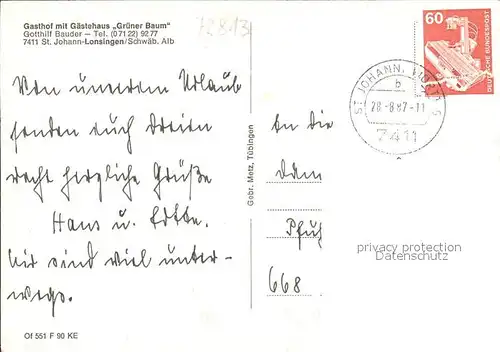 Gasthof mit Gästehaus „Grüner Baum"
Gotthilf Bauder — Tel. (07122) 9277
7411 St. Johann-Lonsingen/Schwäb. Alb
Von unserem Urlaub
senden euch Dreien
recht herzliche Grüße
Hans u. Edtte.
Wir sind viel unter-
wegs.
Of 551 F 90 KE
Gebr. Metz, Tübingen
60
DEUTSCHE BUNDESPOST
ST. JOHANN, WÜRTT 5
b
28.-8.87-11
7411
An die
Dam
Pfuh
668
privacy protection
Datenschutz